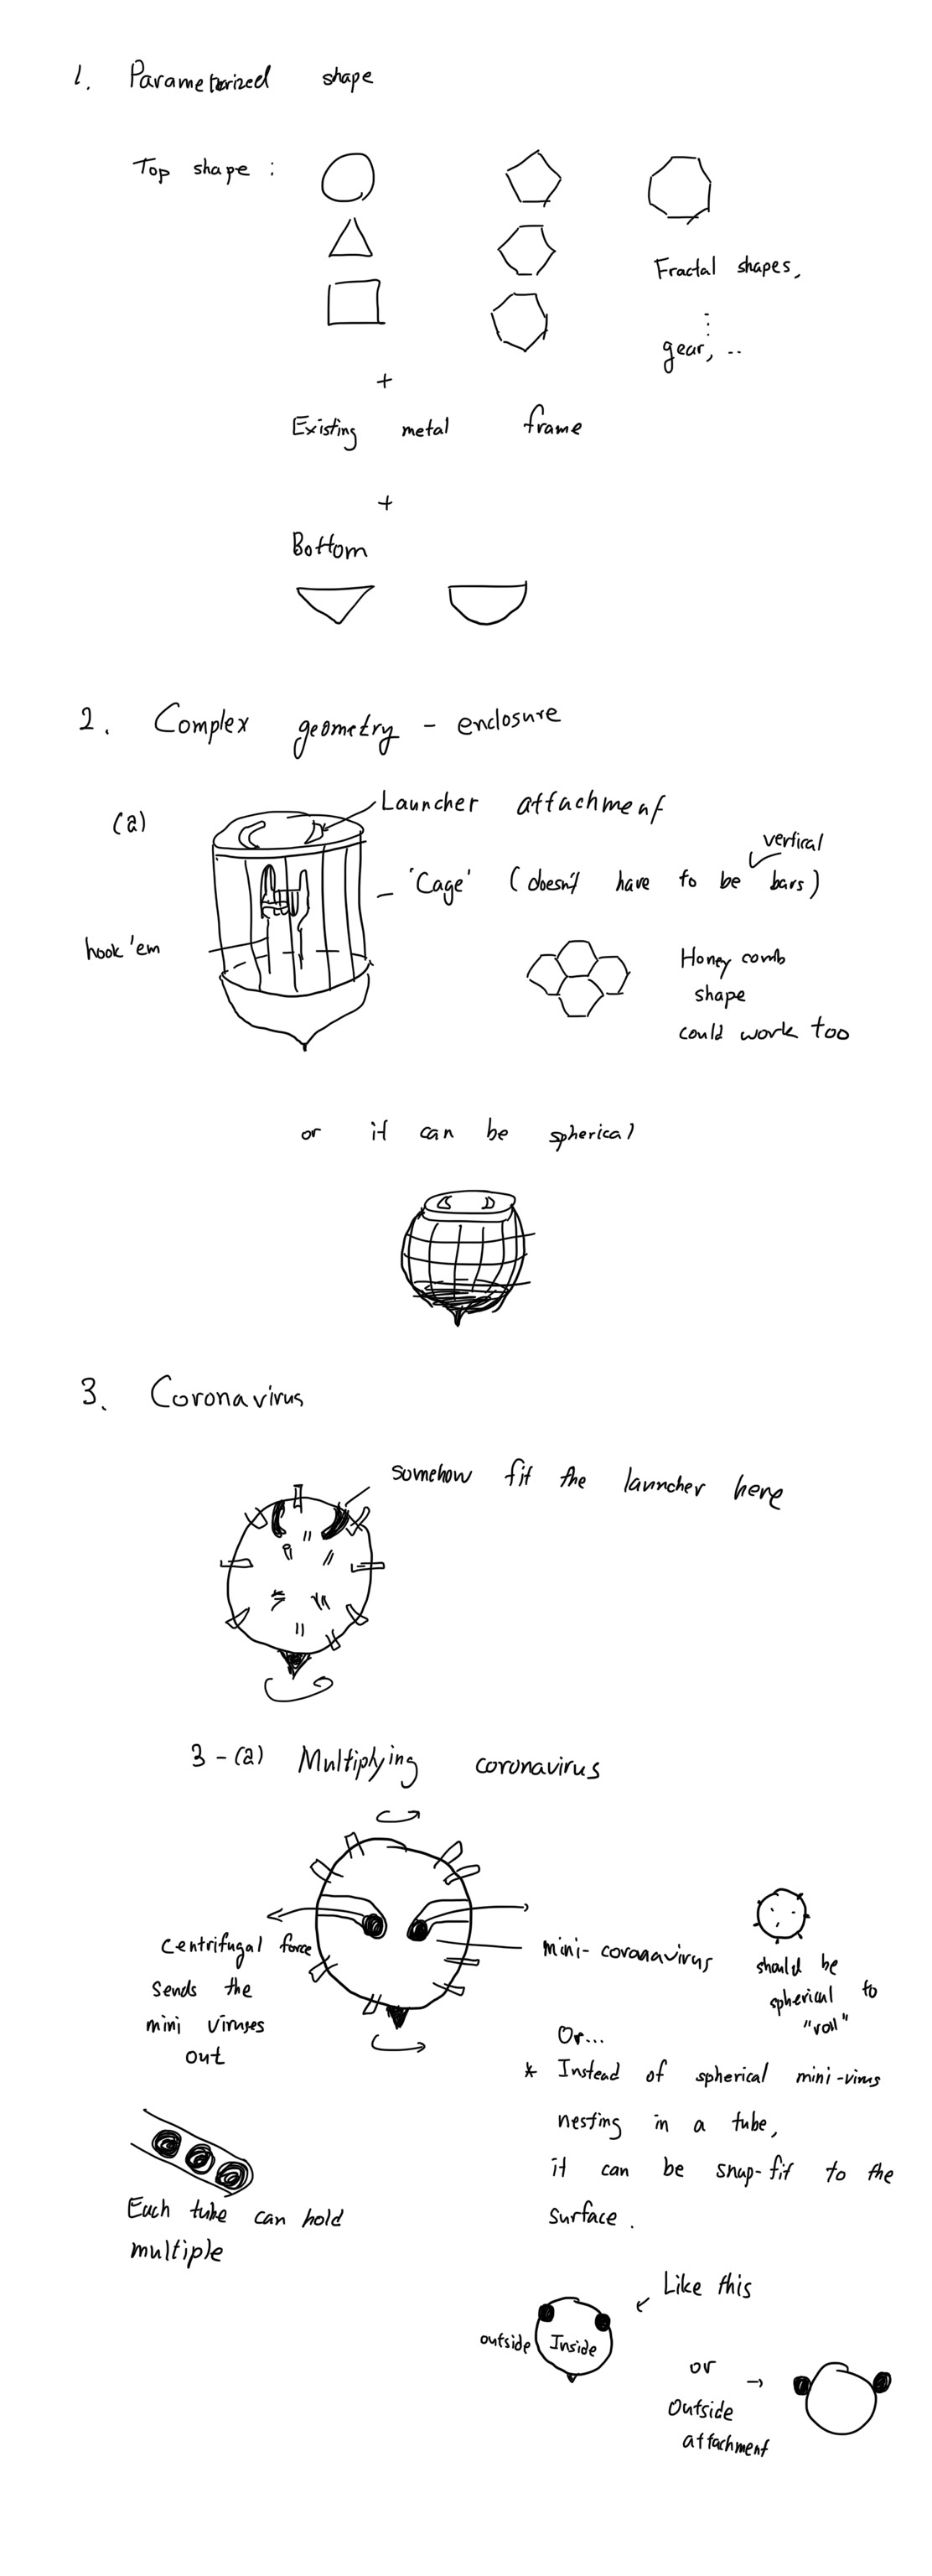 1. Parameterized shape
Top shape :
Fractal shapes,
⋮
gear, ..
+
Existing metal frame
+
Bottom
2. Complex geometry - enclosure
(a)
Launcher attachment
vertical
'Cage' (doesn't have to be bars)
hook 'em
Honey comb
shape
could work too
or it can be spherical
3. Coronavirus
somehow fit the launcher here
3-(a) Multiplying coronavirus
centrifugal force
sends the
mini viruses
out
mini-coronavirus
should be
spherical to
"roll"
Or...
* Instead of spherical mini-virus
nesting in a tube,
it can be snap-fit to the
surface.
Each tube can hold
multiple
Like this
outside
Inside
or
Outside
attachment